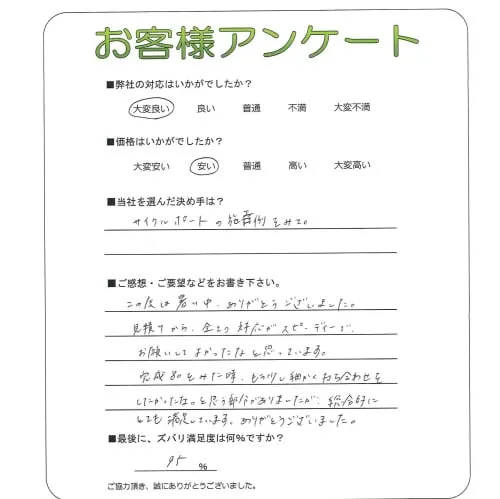 お客様アンケート
■弊社の対応はいかがでしたか?
大変良い 良い 普通 不満 大変不満
■価格はいかがでしたか?
大変安い 安い 普通 高い 大変高い
■当社を選んだ決め手は?
サイクルポートの施工例をみて。
■ご感想・ご要望などをお書き下さい。
この度は暑い中、ありがとうございました。
見積りから、全て 対応がスピーディーで、
お願いしてよかったなと思っています。
完成品をみた時、もう少し細かく打ち合わせを
したかったな。と思う部分がありましたが、総合的に
とても満足しています。ありがとうございました。
■最後に、ズバリ満足度は何%ですか?
95 %
ご協力頂き、誠にありがとうございました。